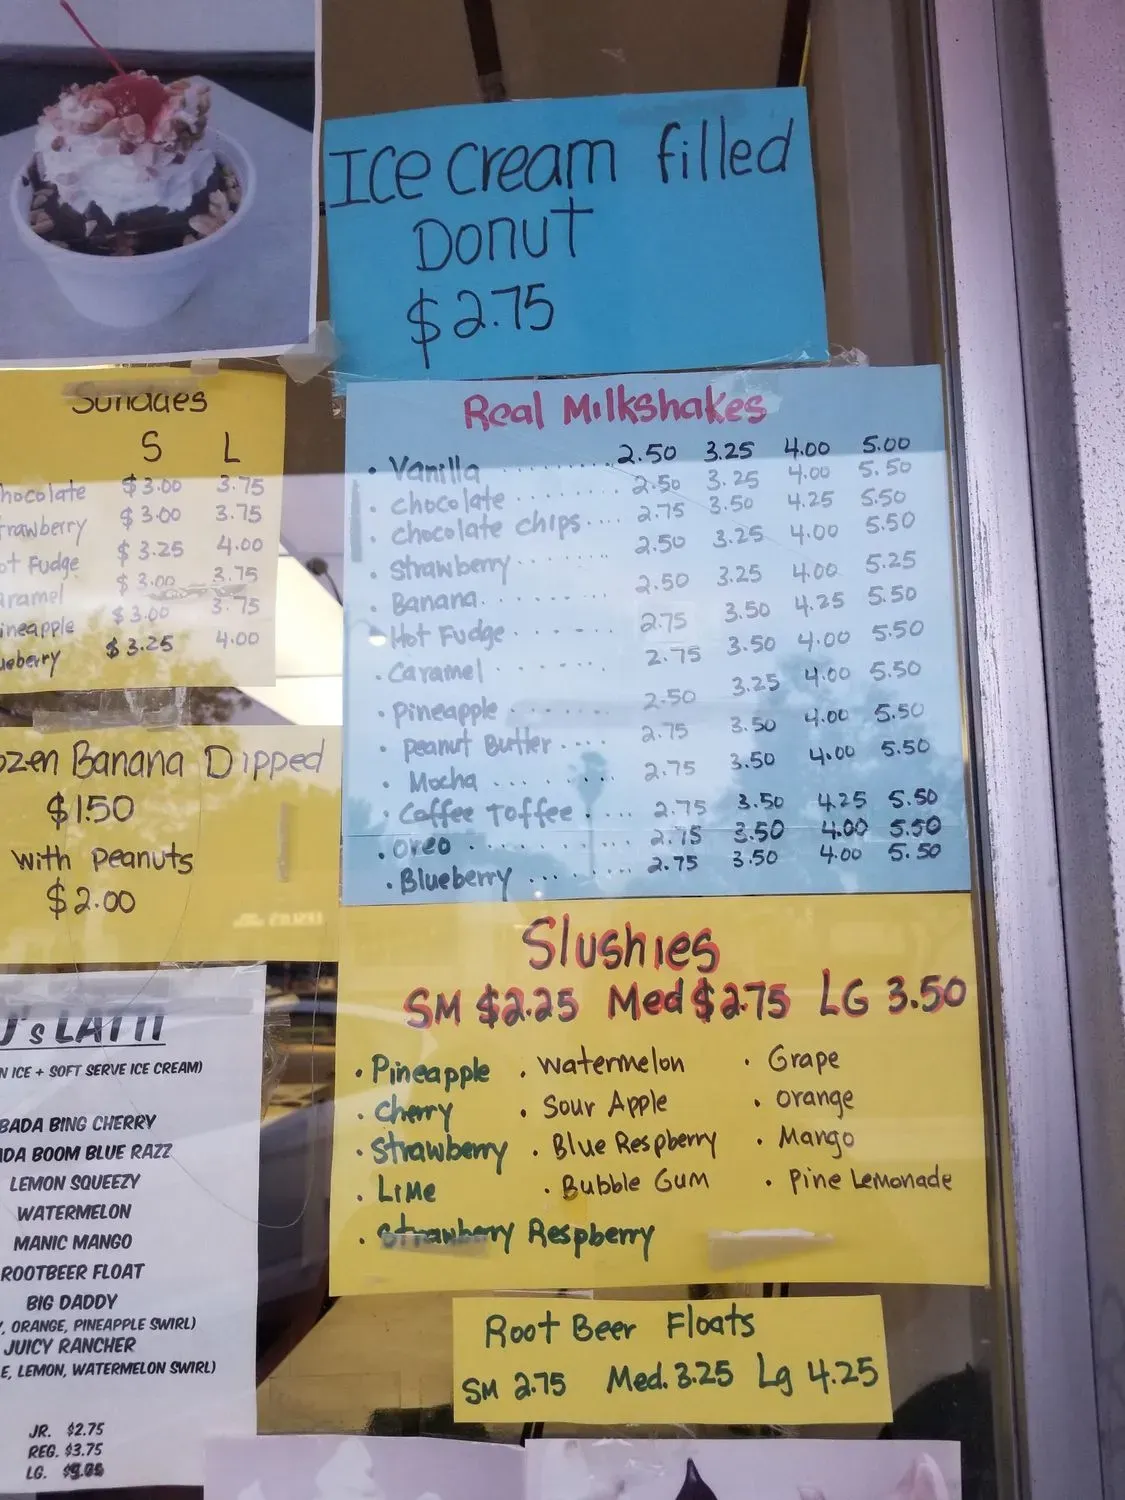 Ice cream filled
Donut
$2.75
Sundaes
S L
hocolate $3.00 3.75
trawberry $3.00 3.75
ot Fudge $3.25 4.00
aramel $3.00 3.75
ineapple $3.00 3.75
ueberry $3.25 4.00
ozen Banana Dipped
$1.50
with peanuts
$2.00
J's LATTI
N ICE + SOFT SERVE ICE CREAM)
BADA BING CHERRY
DA BOOM BLUE RAZZ
LEMON SQUEEZY
WATERMELON
MANIC MANGO
ROOTBEER FLOAT
BIG DADDY
, ORANGE, PINEAPPLE SWIRL)
JUICY RANCHER
E, LEMON, WATERMELON SWIRL)
JR. $2.75
REG. $3.75
LG.
Real Milkshakes
• Vanilla ........ 2.50 3.25 4.00 5.00
• chocolate ........ 2.50 3.25 4.00 5.50
• chocolate chips .... 2.75 3.50 4.25 5.50
• strawberry ...... 2.50 3.25 4.00 5.50
• Banana ........ 2.50 3.25 4.00 5.25
• Hot Fudge ....... 2.75 3.50 4.25 5.50
• Caramel ...... 2.75 3.50 4.00 5.50
• Pineapple ...... 2.50 3.25 4.00 5.50
• peanut Butter .... 2.75 3.50 4.00 5.50
• Mocha ........ 2.75 3.50 4.00 5.50
• Coffee Toffee ..... 2.75 3.50 4.25 5.50
• Oreo .......... 2.75 3.50 4.00 5.50
• Blueberry ........ 2.75 3.50 4.00 5.50
Slushies
SM $2.25 Med $2.75 LG 3.50
• Pineapple • Watermelon • Grape
• Cherry • Sour Apple • orange
• Strawberry • Blue Respberry • Mango
• Lime • Bubble Gum • Pine Lemonade
• Strawberry Respberry
Root Beer Floats
SM 2.75 Med. 3.25 Lg 4.25